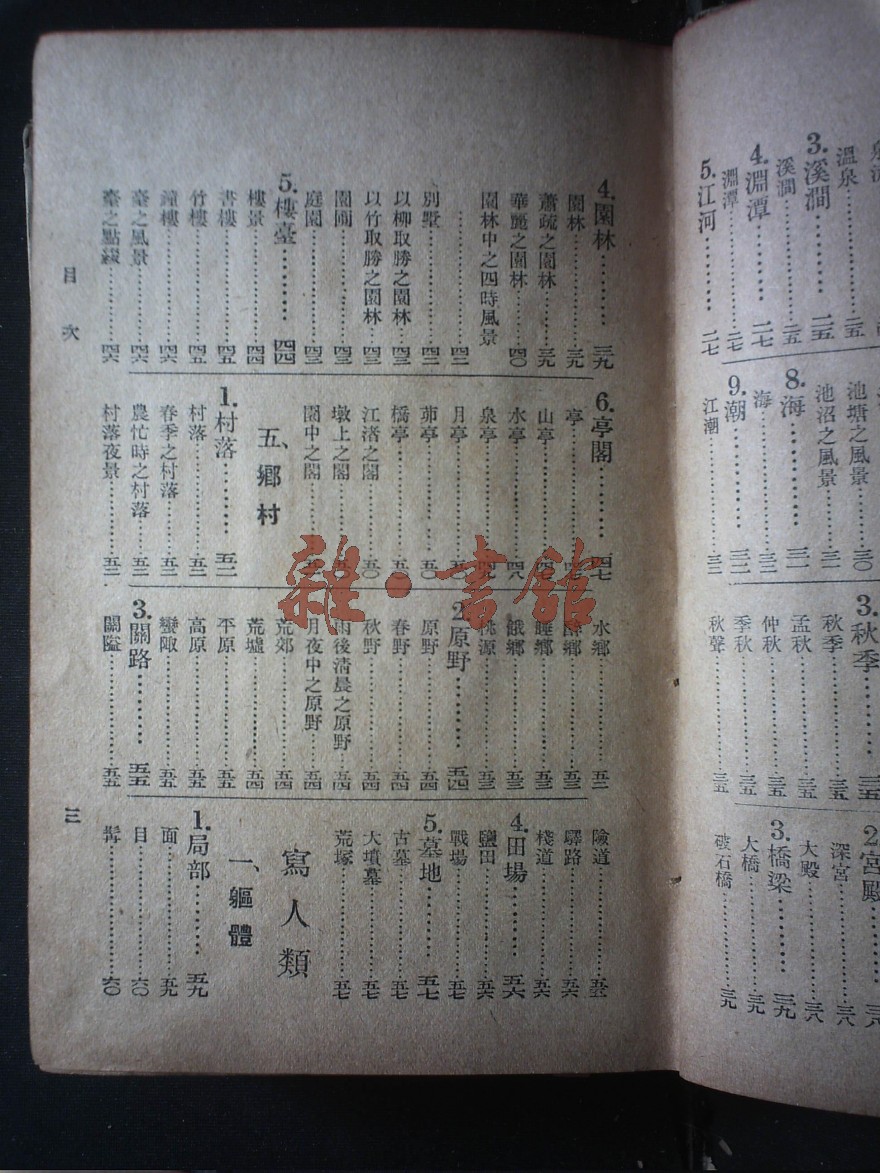 溫泉……二五
3.溪澗……二五
溪澗……二五
4.淵潭……二七
淵潭……二七
5.江河……二七
池塘之風景……三〇
池沼之風景……三一
8.海……三一
海……三一
9.潮……三二
江潮……三二
3.秋季……三五
秋季……三五
孟秋……三五
仲秋……三五
季秋……三五
秋聲……三五
2.宮殿……三八
深宮……三八
大殿……三八
3.橋梁……三九
大橋……三九
破石橋……三九
4.園林……三九
園林……三九
蕭疏之園林……三九
華麗之園林……四〇
園林中之四時風景
……四二
別墅……四二
以柳取勝之園林……四三
以竹取勝之園林……四三
園圃……四三
庭園……四三
5.樓臺……四四
樓景……四四
書樓……四五
竹樓……四五
鐘樓……四六
臺之風景……四六
臺之點綴……四六
6.亭閣……四七
亭……四七
山亭……四七
水亭……四八
泉亭……四九
月亭……五〇
茆亭……五〇
橋亭……五〇
江渚之閣……五〇
墩上之閣……五〇
園中之閣……五一
五、鄉村
1.村落……五二
村落……五二
春季之村落……五二
農忙時之村落……五二
村落夜景……五二
水鄉……五三
醉鄉……五三
睡鄉……五三
餓鄉……五三
桃源……五三
2.原野……五四
原野……五四
春野……五四
秋野……五四
雨後清晨之原野……五四
月夜中之原野……五四
荒郊……五四
荒墟……五四
平原……五五
高原……五五
蠻陬……五五
3.關路……五五
關隘……五五
險道……五六
驛路……五六
棧道……五六
4.田場……五六
鹽田……五六
戰場……五七
5.墓地……五七
古墓……五七
大墳墓……五七
荒塚……五七
寫人類
一、軀體
1.局部……五九
面……五九
目……六〇
髯……六〇
目次
三
雜·書館